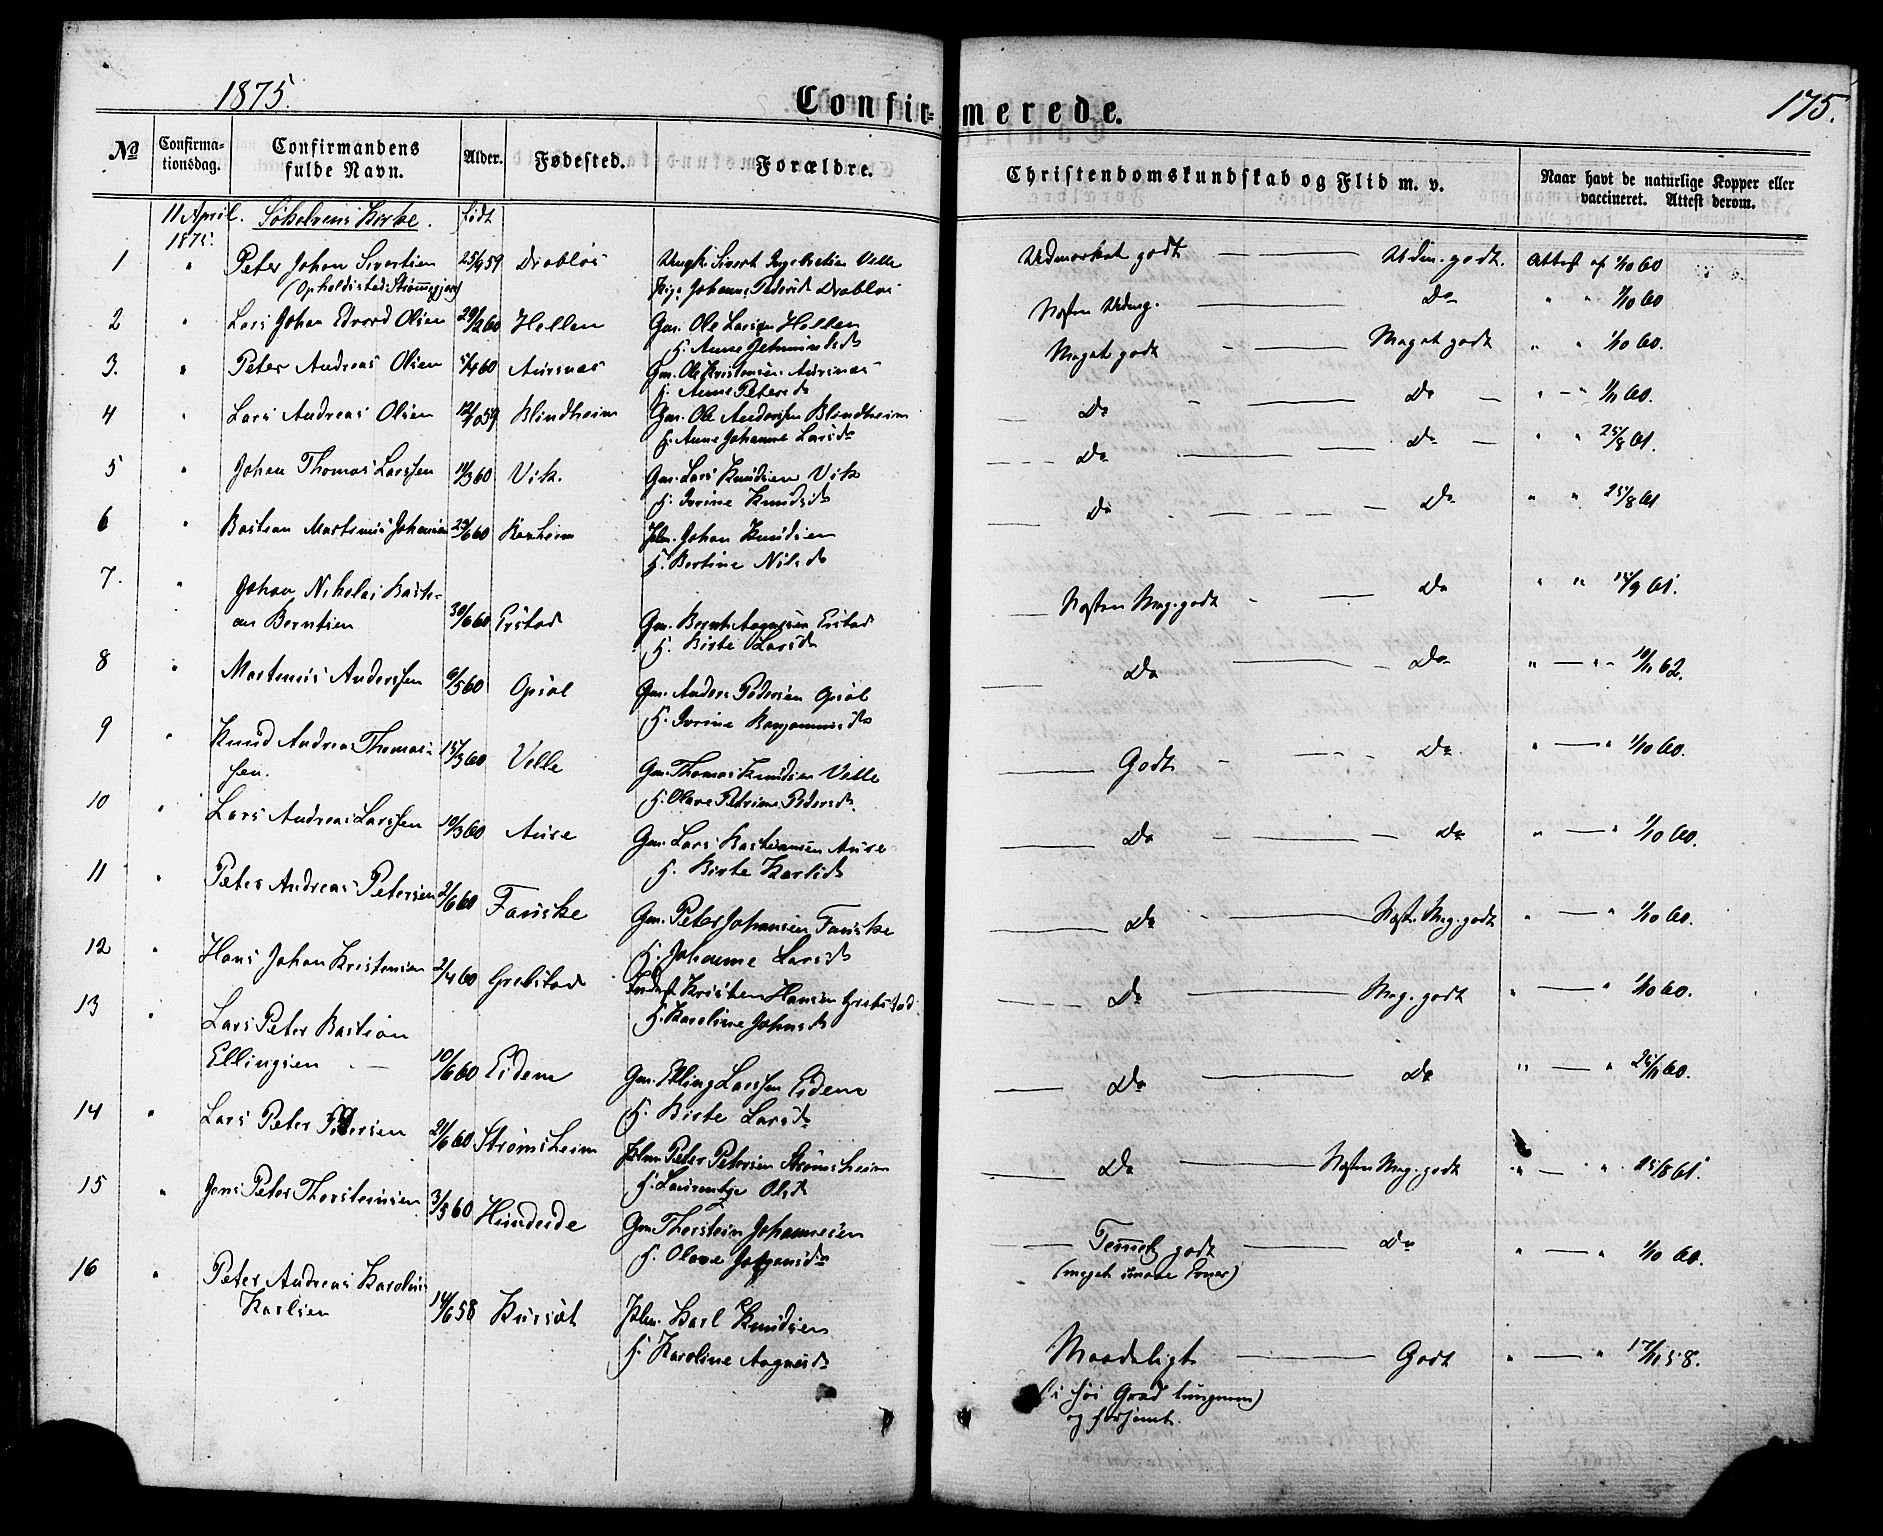 1875.
Confir-merede.
175.
No
Confirma-
tionsdag.
Confirmandens
fulde Navn.
Alder.
Fødested.
Forældre.
Christendomskundskab og Flid m. v.
Naar havt de naturlige Kopper eller
vaccineret. Attest derom.
11 April
1875.
Søkelvens Kirke.
født
1 " Peter Johan Sivertsen 25/9 59 Drabløs Ungk. Sivert Ingebretsen Velle Udmærket godt — Udm. godt. Attest af 1/10 60
(Opholdssted: Strømegjerd) Pige Johanne Pedersd. Drabløs
2 " Lars Johan Edvard Olsen 29/2 60 Hellen Gm. Ole Larsen Hellen Næsten Udmg. — Do " " 1/10 60
H. Anne Jetmundsd.
3. " Peter Andreas Olsen 5/4 60 Aursnes Gm. Ole Kristensen Aursnes Meget godt — Meget godt " " 1/10 60.
H. Anne Petersd.
4 " Lars Andreas Olsen 12/10 59 Blindheim Gm. Ole Andersen Blindheim — Do — Do — " — " 1/11 60.
H. Anne Johanne Larsd.
5 " Johan Thomas Larssen 11/3 60 Vik. Gm. Lars Knudsen Vik — Do — Do — " " 25/8 61.
H. Ivrine Knudsd.
6 " Bastian Martinus Johansen 29/6 60 Ramheim Jblm. Johan Knudsen — Do — Do " " 25/8 61
H. Bertine Nilsd.
7. " Johan Nikolai Basti-
an Berntsen 30/6 60 Erstad Gm. Bernt Aagesen Erstad — Næsten Meg. godt — Do " " 14/9 61.
H. Birte Larsd.
8 " Martinus Anderssen 6/5 60 Opsal Gm. Anders Pedersen Opsal — Do — Do " — " 10/11 62.
H. Ivrine Benjaminsd.
9 " Knud Andreas Thomas-
sen. 15/3 60 Velle Gm. Thomas Knudsen Velle — Godt — Do " — " 1/10 60.
H. Olave Petrine Pedersd.
10 " Lars Andreas Larssen 10/3 60 Aure Gm. Lars Bastiansen Aure — Do — Do " — " 1/10 60.
H. Birte Karlsd.
11 " Peter Andreas Petersen 2/6 60 Fauske Gm. Peter Johansen Fauske — Do — Næst. Meg. godt " — " 1/10 60.
H. Johanne Larsd.
12 " Hans Johan Kristensen 2/4 60 Grebstad Inderst Kristen Hansen Grebstad — Do — Meg. godt " — " 1/10 60.
H. Karoline Johnsd.
13 " Lars Peter Bastian
Ellingsen — 10/6 60 Eidem Gm. Elling Larssen Eidem — Do — Do " — " 26/11 60.
H. Birte Larsd.
14 " Lars Peter Petersen 21/6 60 Strømsheim Jblm Peter Petersen Strømsheim — Do — Næsten Meg. godt " — " 25/8 61.
H. Laurentze Olsd.
15 " Jens Peter Thorsteinsen 3/5 60 Hundeide Gm Thorstein Johannesen — Temmel. godt — Do " — " 1/10 60.
H. Olave Johansd. (meget smaae Evner)
16 " Peter Andreas Karolius
Karlsen 14/6 58 Kursæt Jblm. Karl Knudsen Maadeligt — Godt " — " 17/11 58.
H. Karoline Aagesd. (i høi Grad tungnem)
og forsømt.